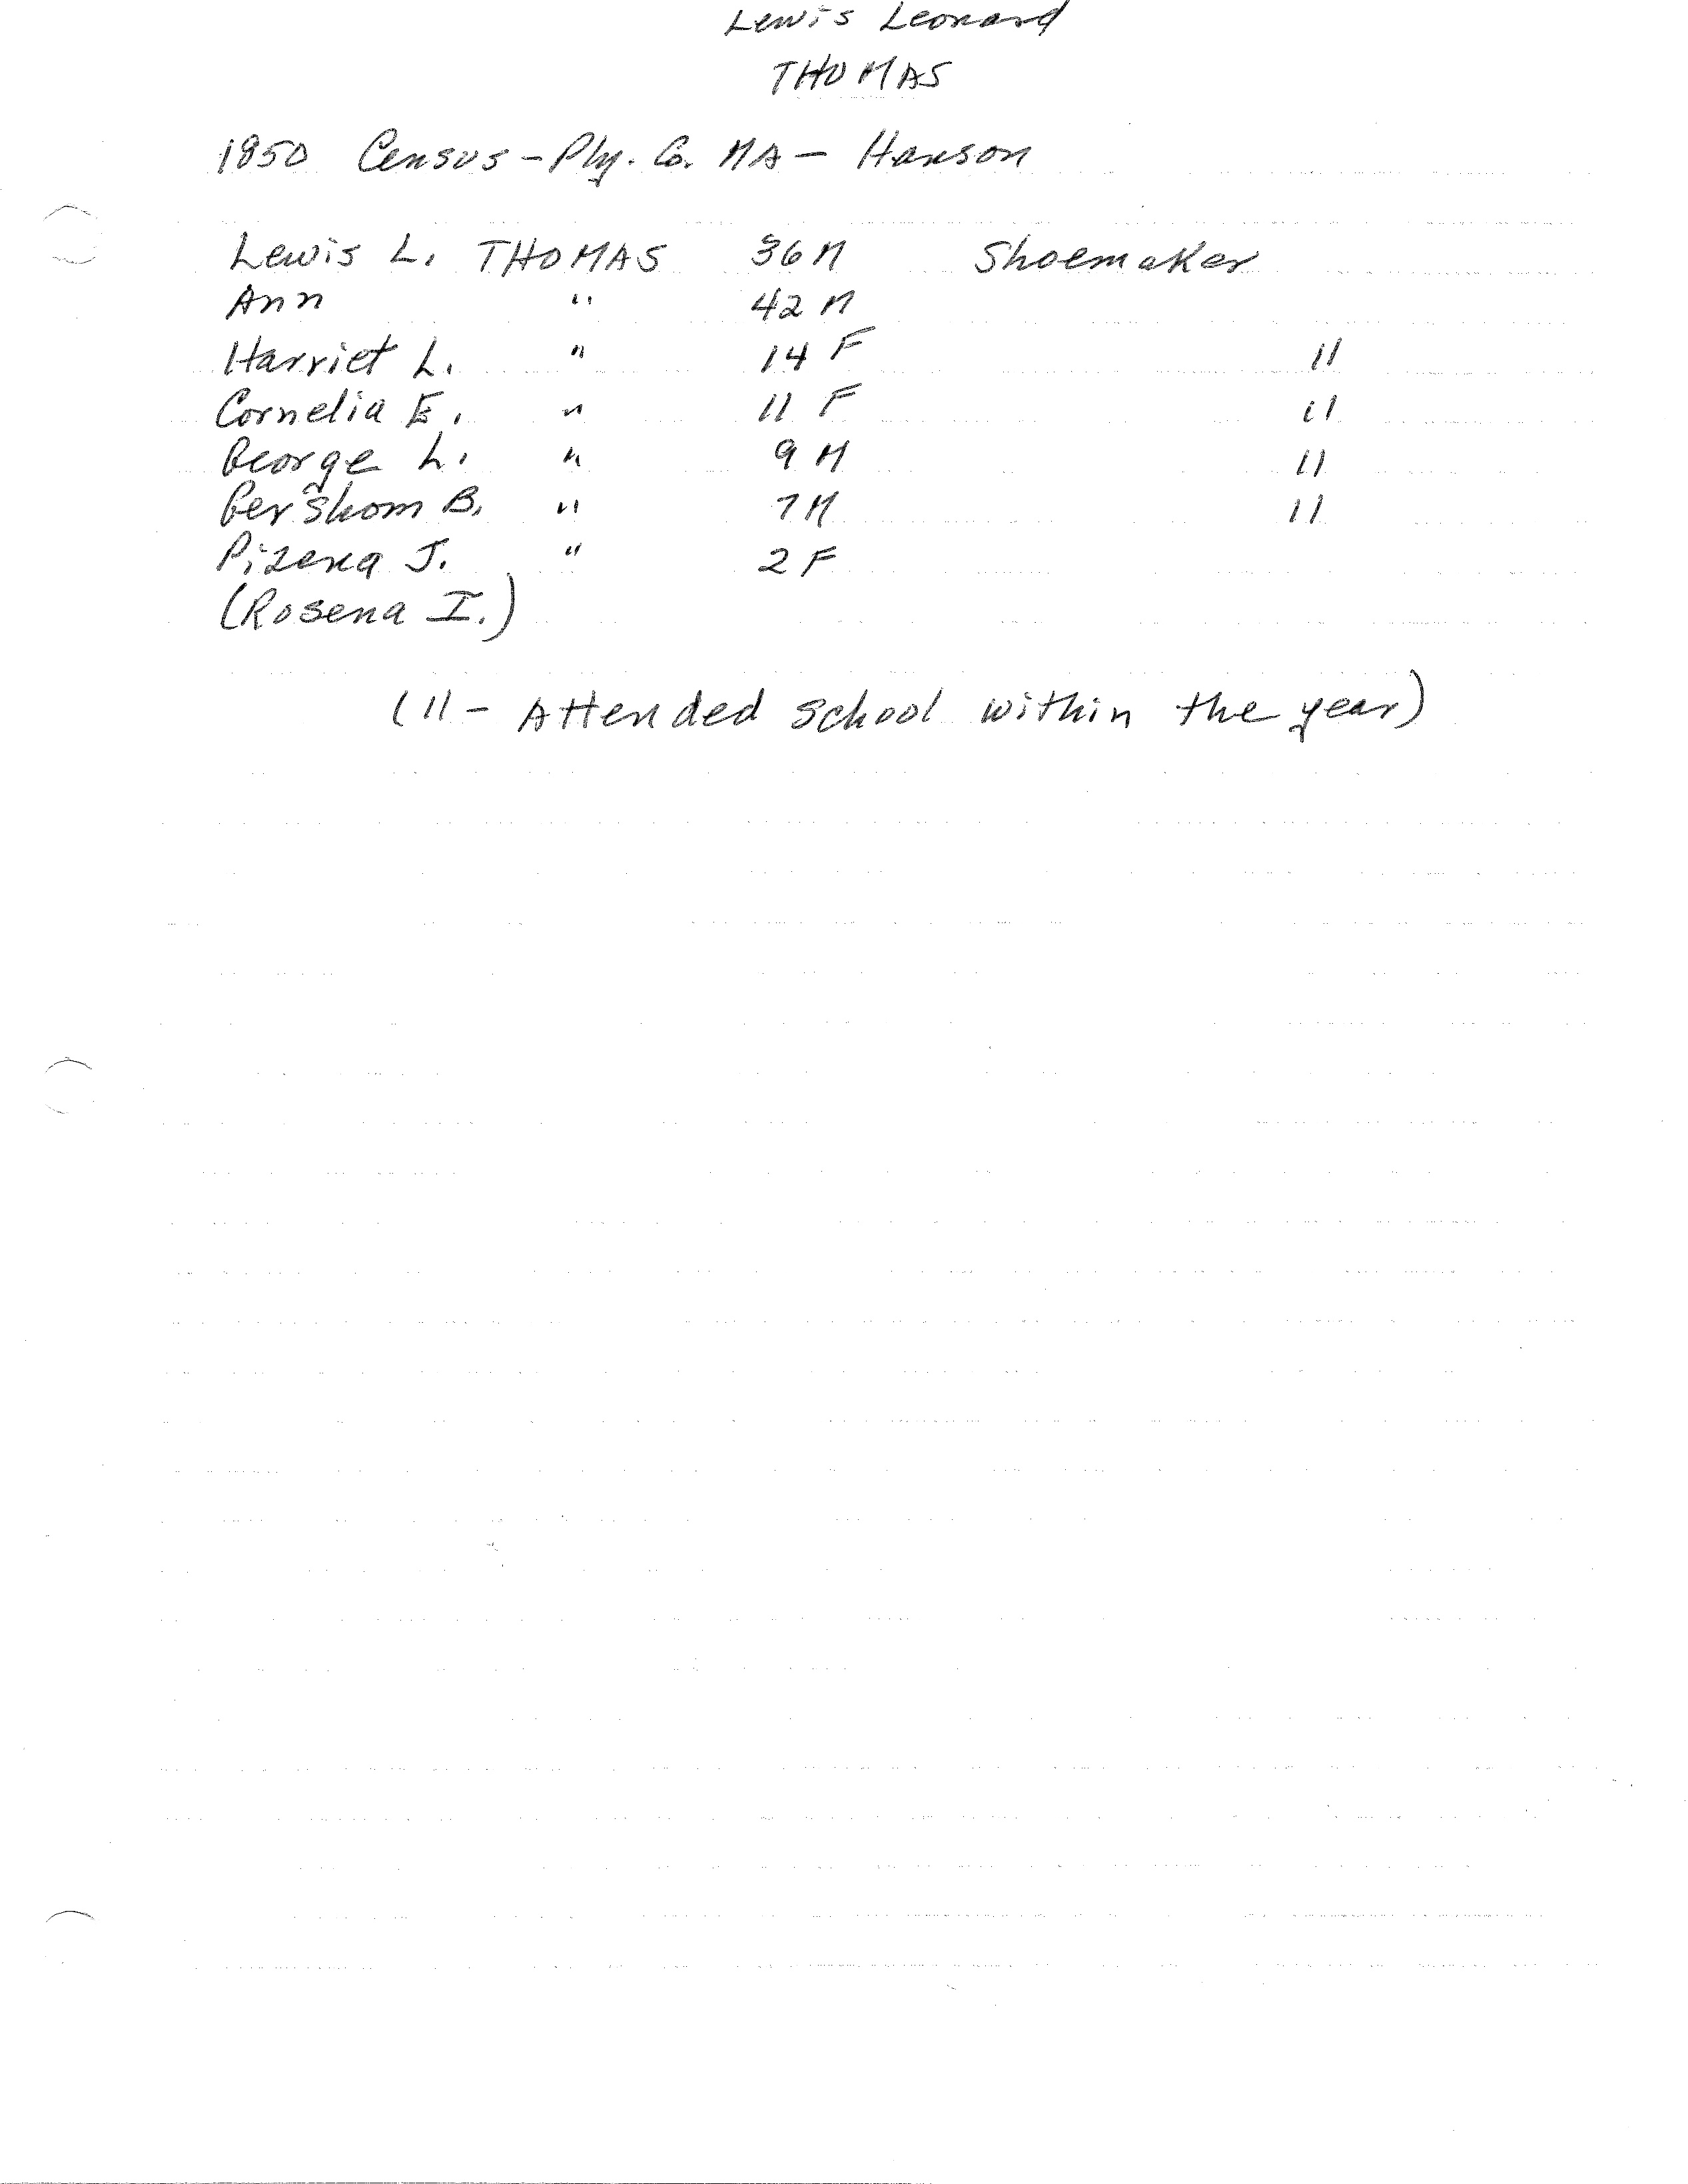 Lewis Leonard
THOMAS
1850 Census - Ply. Co. MA - Hanson
Lewis L. THOMAS 36 M Shoemaker
Ann " 42 M
Harriet L. " 14 F 11
Cornelia E. " 11 F 11
George L. " 9 M 11
Gershom B. " 7 M 11
Pizena J. " 2 F
(Rosena I.)
(11 - Attended school within the year)